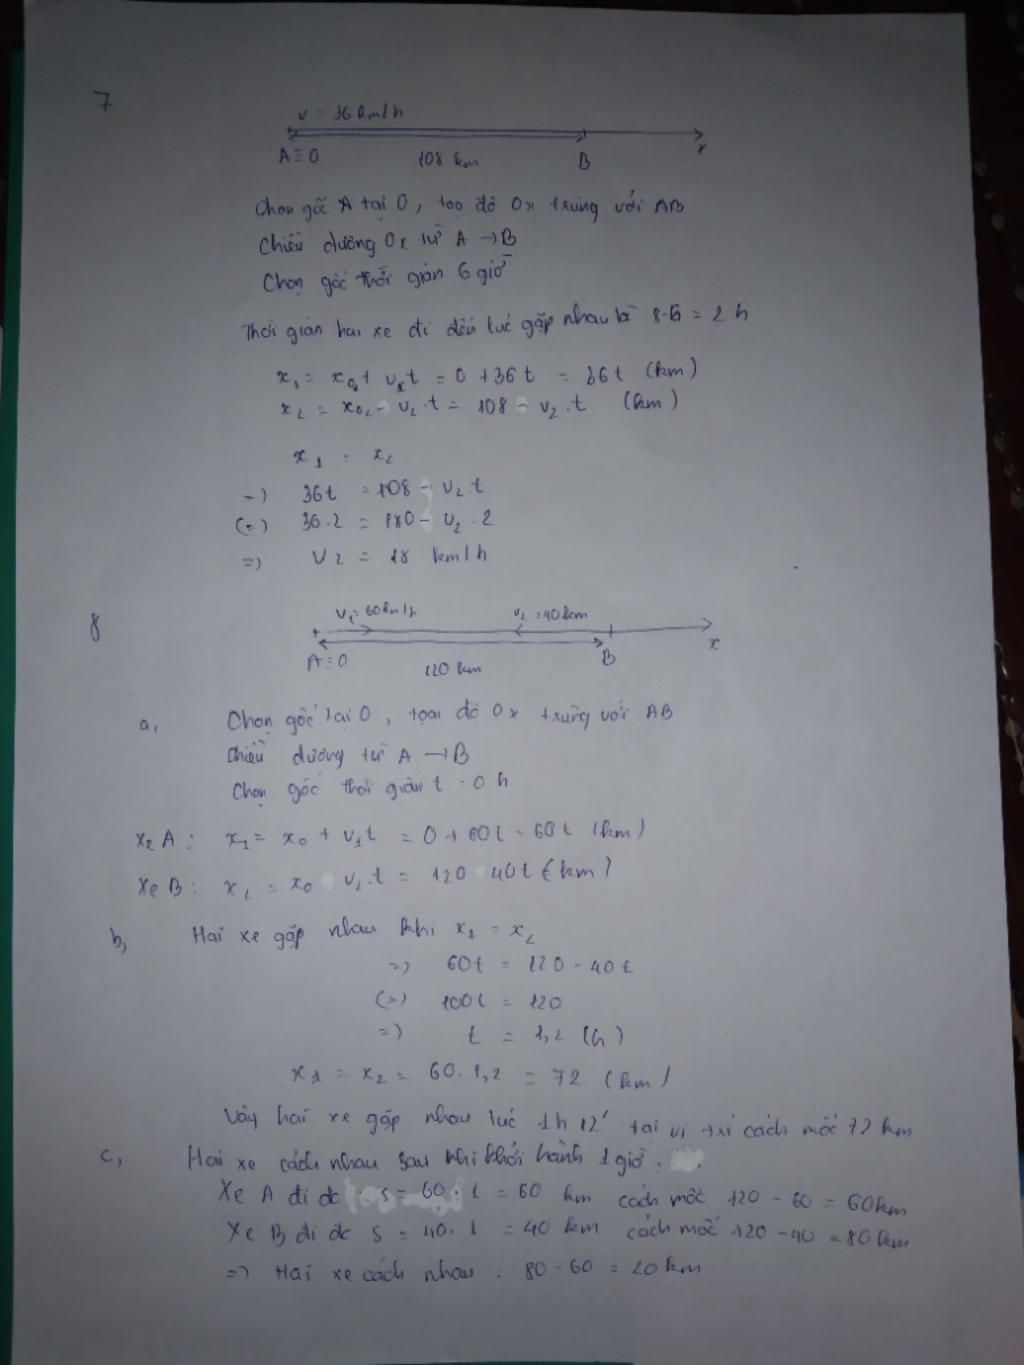 7
v = 36 km/h
A ≡ O 108 km B x
Chọn gốc A tại O, toạ độ Ox trùng với AB
Chiều dương Ox từ A → B
Chọn gốc thời gian 6 giờ
Thời gian hai xe đi đến lúc gặp nhau là 8-6 = 2 h
x₁ = x₀₁ + v₁t = 0 + 36t = 36t (km)
x₂ = x₀₂ - v₂.t = 108 - v₂.t (km)
x₁ = x₂
=> 36t = 108 - v₂.t
(=) 36.2 = 180 - v₂.2
=> v₂ = 18 km/h
8
v₁ = 60km/h v₂ = 40km
A ≡ O 120 km B x
a, Chọn gốc tại O, tọa độ Ox trùng với AB
Chiều dương từ A → B
Chọn gốc thời gian t = 0 h
Xe A: x₁ = x₀ + v₁t = 0 + 60t = 60t (km)
Xe B: x₂ = x₀ v₂.t = 120 - 40t (km)
b, Hai xe gặp nhau khi x₁ = x₂
=> 60t = 120 - 40t
(=) 100t = 120
=> t = 1,2 (h)
x₁ = x₂ = 60.1,2 = 72 (km)
Vậy hai xe gặp nhau lúc 1h 12' tại vị trí cách mốc 72 km
c, Hai xe cách nhau sau khi khởi hành 1 giờ:
Xe A đi đc s = 60.1 = 60 km cách mốc 120 - 60 = 60km
Xe B đi đc s = 40.1 = 40 km cách mốc 120 - 40 = 80km
=> Hai xe cách nhau: 80 - 60 = 20km